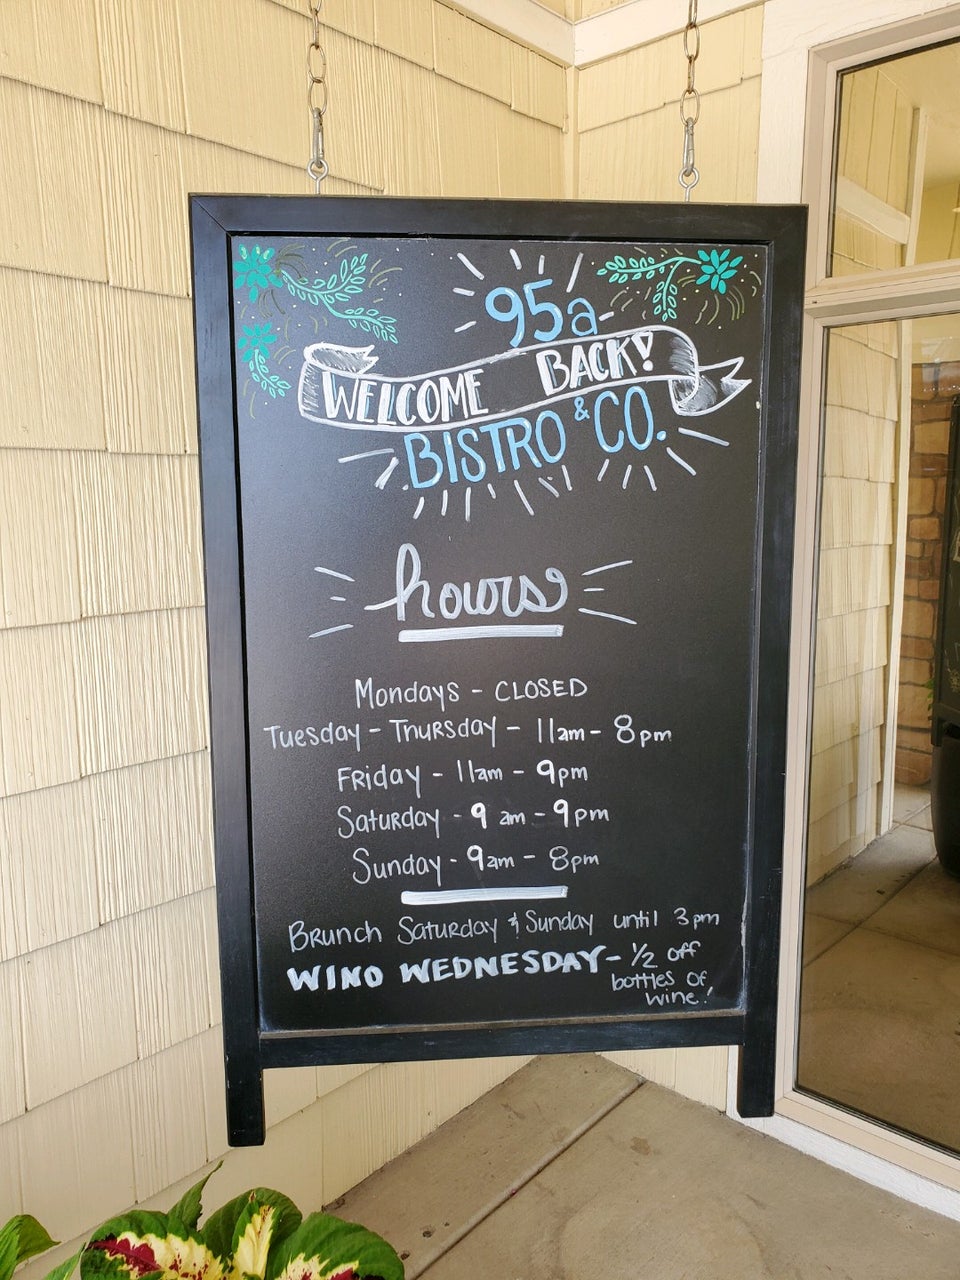 95a
WELCOME BACK!
BISTRO & CO.
hours
Mondays - CLOSED
Tuesday - Thursday - 11am - 8pm
Friday - 11am - 9pm
Saturday - 9 am - 9pm
Sunday - 9am - 8pm
Brunch Saturday & Sunday until 3pm
WINO WEDNESDAY - 1/2 off
bottles of
wine!